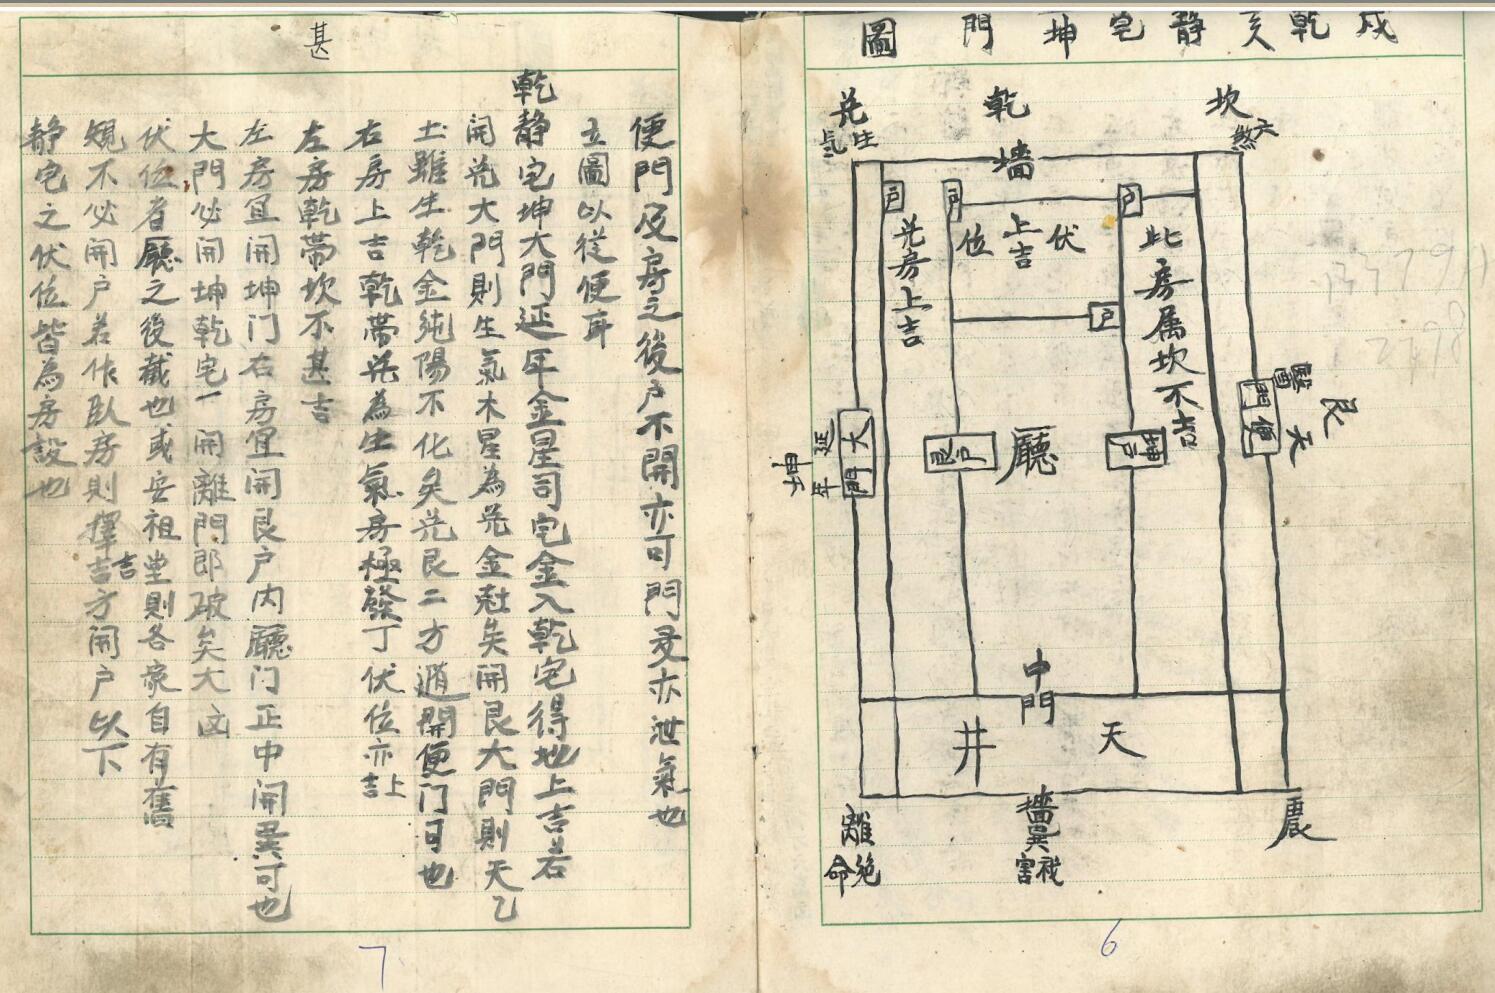 戍乾亥静宅坤門圖
坎
六煞
乾
兌
生氣
墻
户
户
户
伏
上吉
位
此房属坎不吉
兌房上吉
户
醫
天
艮
便門
坤户
廳
艮户
大門
延年
坤
中門
天井
震
墻
巽
禍害
離
絶命
6
便門及房之後户不開亦可門多亦泄氣也
立圖以從便耳
乾静宅坤大門延年金星司宅金入乾宅得地上吉若
開兌大門則生氣木星為兌金尅矣開艮大門則天乙
土雖生乾金純陽不化矣兌艮二方遁開便门可也
右房上吉乾帶兌為生氣房極發丁伏位亦上吉
左房乾帶坎不甚吉
左房宜開坤门右房宜開艮户内廳门正中開巽可也
大門必開坤乾宅一開離門即破矣大凶
伏位者廳之後截也或安祖堂則各家自有舊
規不必開户若作臥房則擇吉方開户以下
吉
静宅之伏位皆為房設也
甚
7